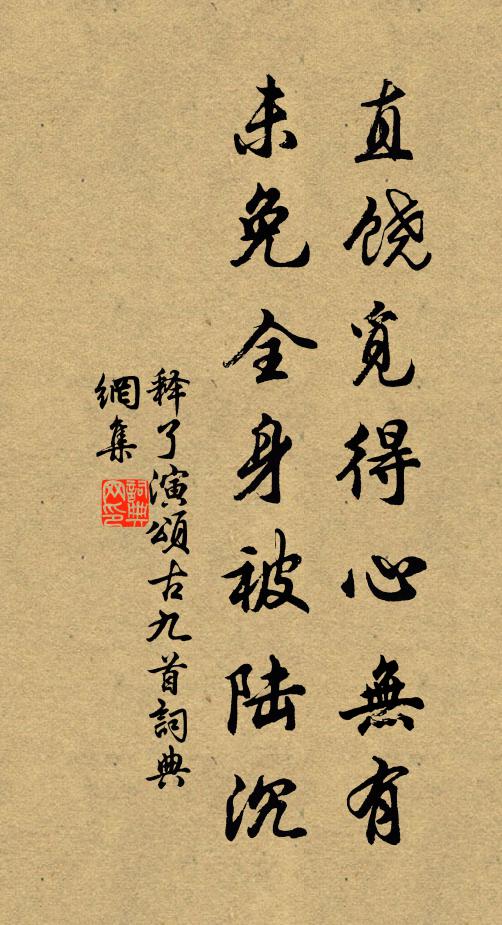 直饶觅得心無有
未免全身被陆沉
释了演頌古九首詞典
網集
詞典
网印